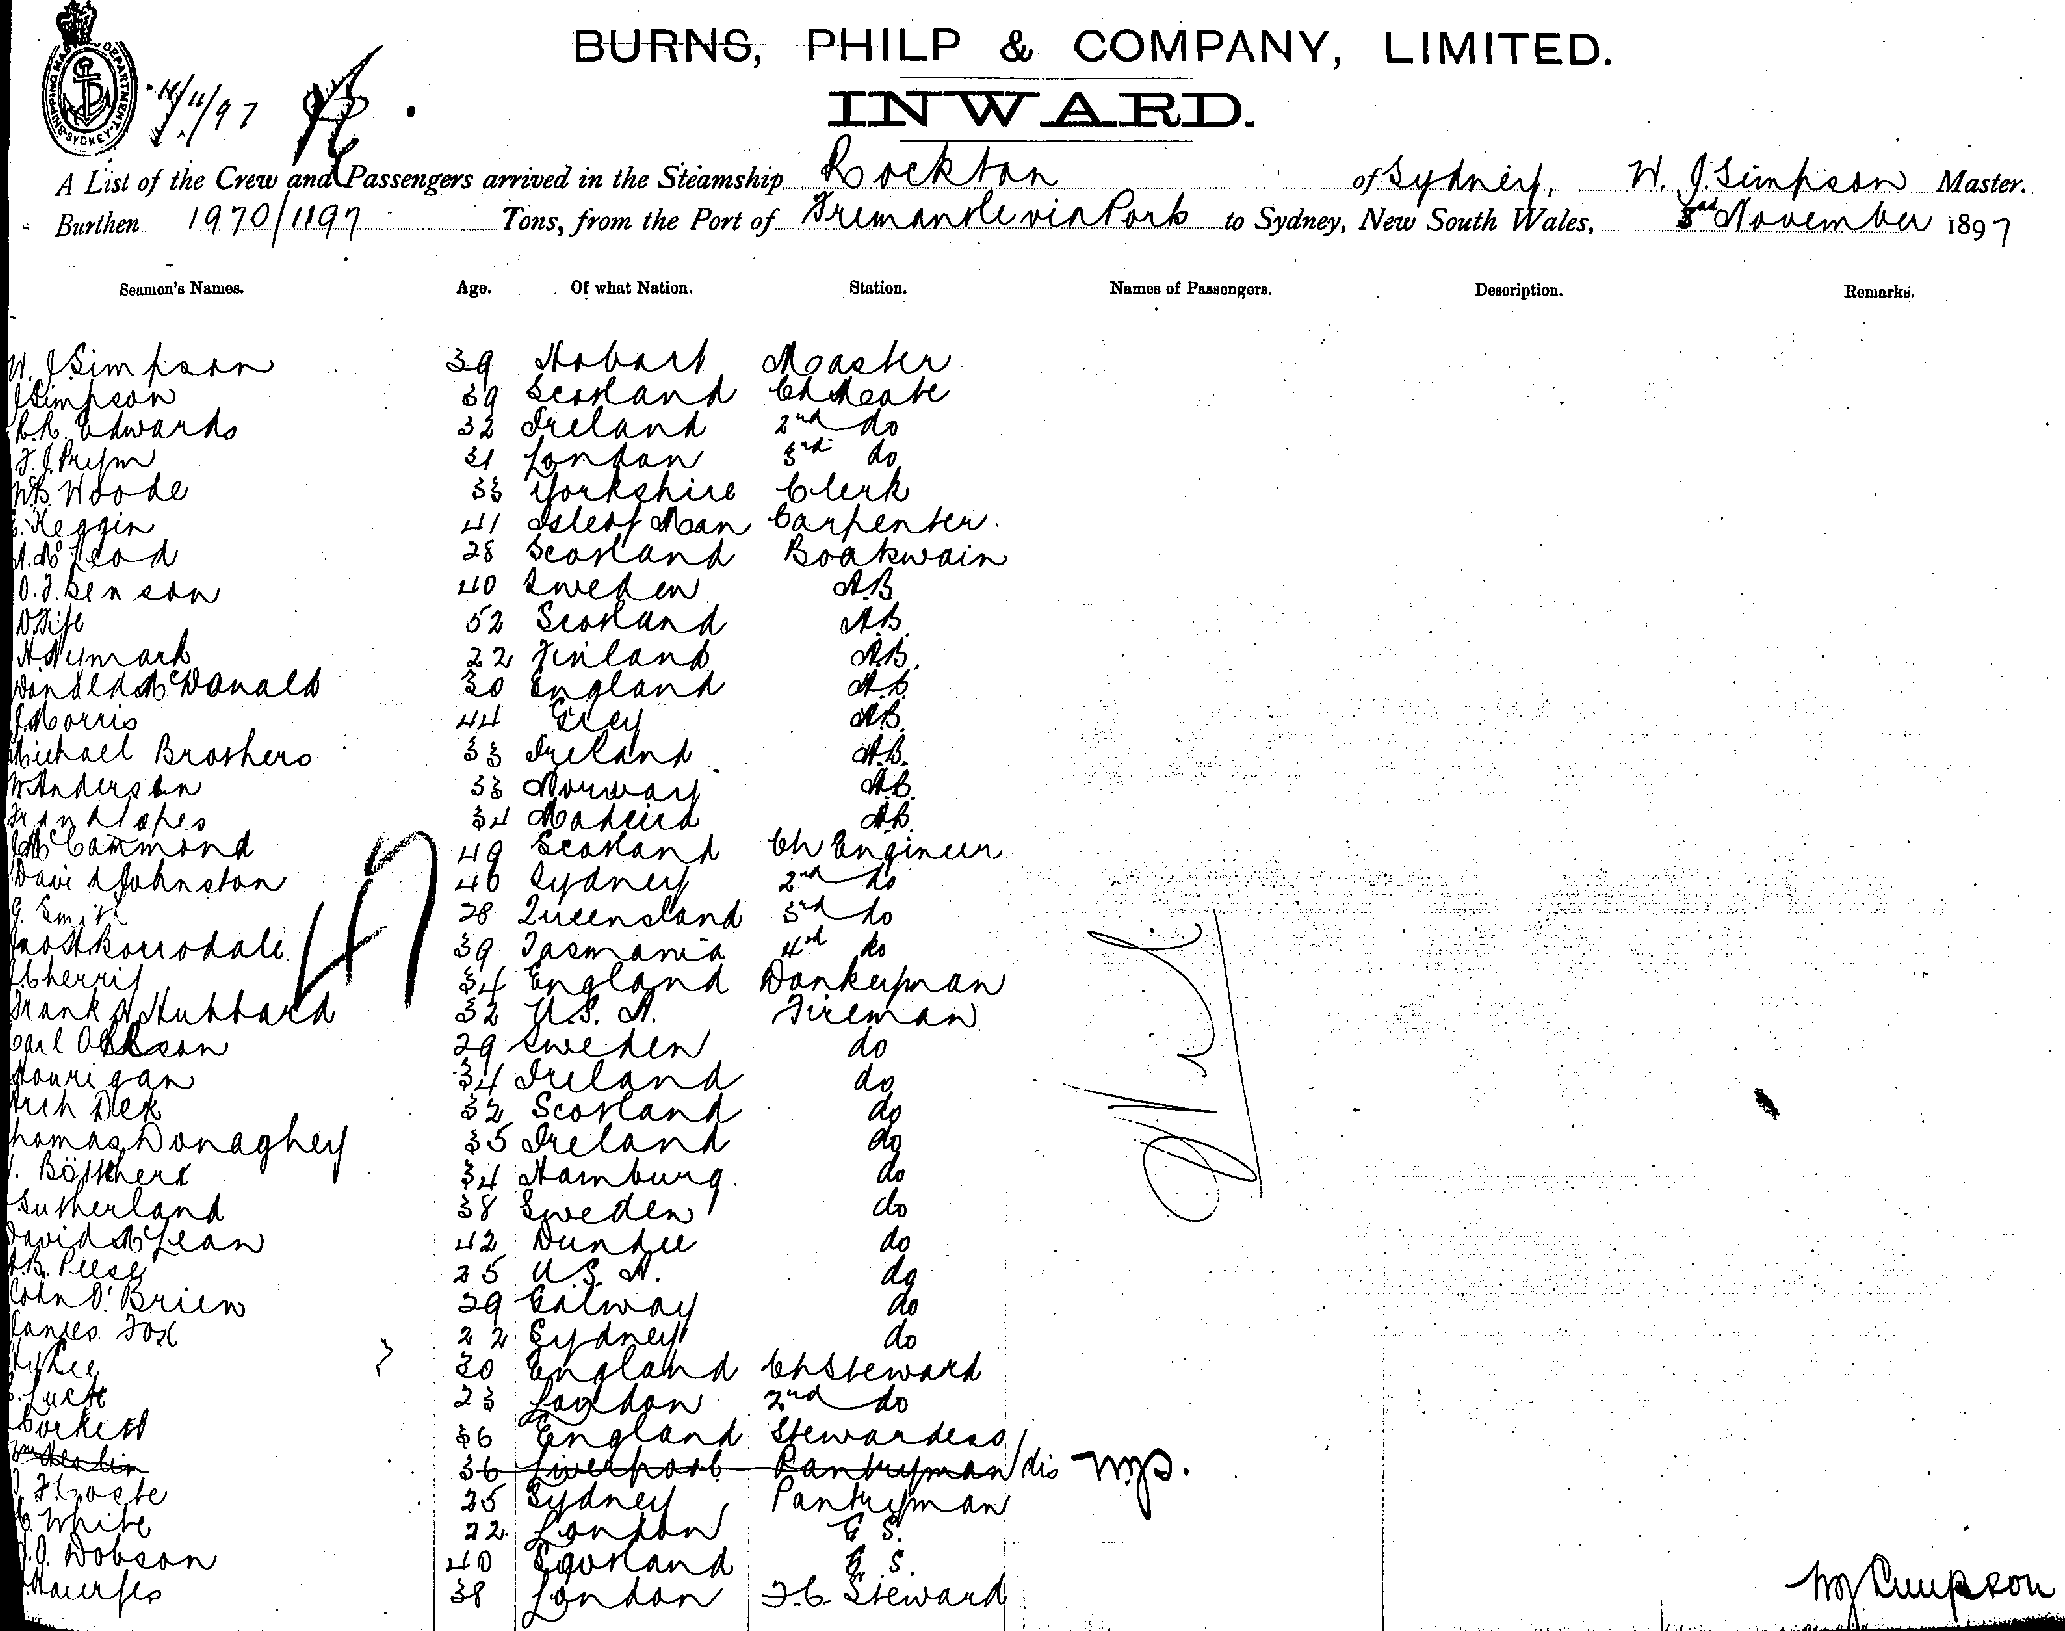 BURNS, PHILP & COMPANY, LIMITED.
INWARD.
11/97
A List of the Crew and Passengers arrived in the Steamship Rockton of Sydney, W. J. Simpson Master.
Burthen 1970/1197 Tons, from the Port of Fremantle via Ports to Sydney, New South Wales, 3rd November 1897
Seamen's Names. Age. Of what Nation. Station. Names of Passengers. Description. Remarks.
W. J Simpson 39 Hobart Master
J Simpson 39 Scotland Ch Mate
Edwards 32 Ireland 2nd do
F. J. Prym 31 London 3rd do
W B Woode 33 Yorkshire Clerk
Keggin 41 Isle of Man Carpenter
McLeod 28 Scotland Boatswain
O. J. Benson 40 Sweden AB
D Fife 52 Scotland A.B.
A Nymark 22 Finland AB.
Donald McDonald 30 England A.B.
J Morris 44 AB.
Michael Brothers 33 Ireland A.B.
W Anderson 33 Norway AB.
Frank Lopes 34 Madeira AB.
McCammond 49 Scotland Ch Engineer
David Johnston 46 Sydney 2nd do
G. Smith 28 Queensland 3rd do
Jno H Borrodale 39 Tasmania 4th do
Cherrif 34 England Donkeyman
Frank H Hubbard 32 U.S.A. Fireman
Carl Olsson 29 Sweden do
Hourigan 34 Ireland do
Arch Dek 32 Scotland do
Thomas Donaghey 35 Ireland do
Böttcher 34 Hamburg do
Sutherland 38 Sweden do
David McLean 42 Dundee do
Peese 25 U.S.A. do
John O'Brien 29 Galway do
James Fox 22 Sydney do
30 England Ch Steward
23 London 2nd do
Corkett 36 England Stewardess
36 Liverpool Pantryman dis
25 Sydney Pantryman
White 22 London G.S.
Dobson 40 Scotland G.S.
38 London F.C. Steward
47
Nil
W J Simpson